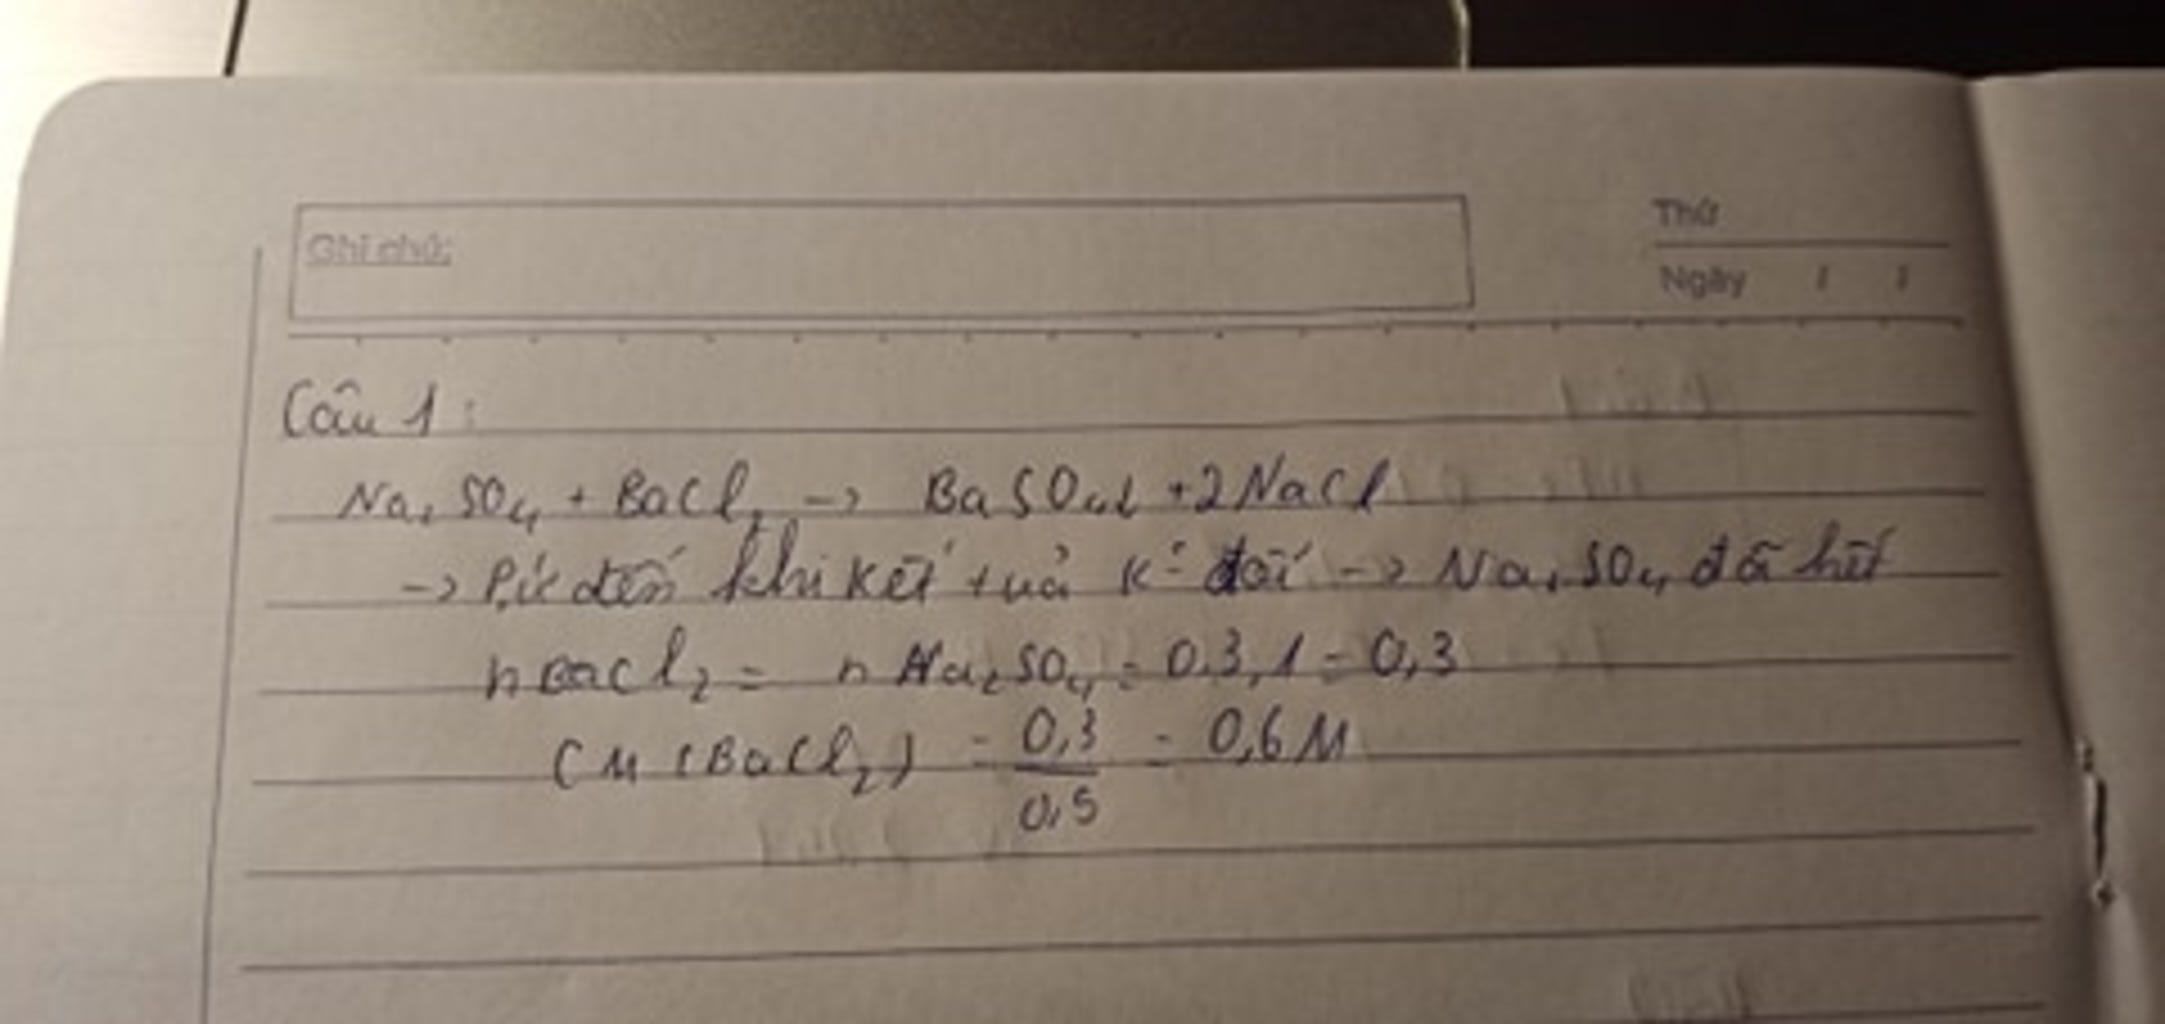 Ghi chú:
Thứ
Ngày / /
Câu 1:
Na₂SO₄ + BaCl₂ -> BaSO₄↓ + 2NaCl
-> Pứ đến khi kết tủa k đổi -> Na₂SO₄ đã hết
nBaCl₂ = nNa₂SO₄ = 0.3,1 = 0,3
CM (BaCl₂) = 0,3/0,5 = 0,6M